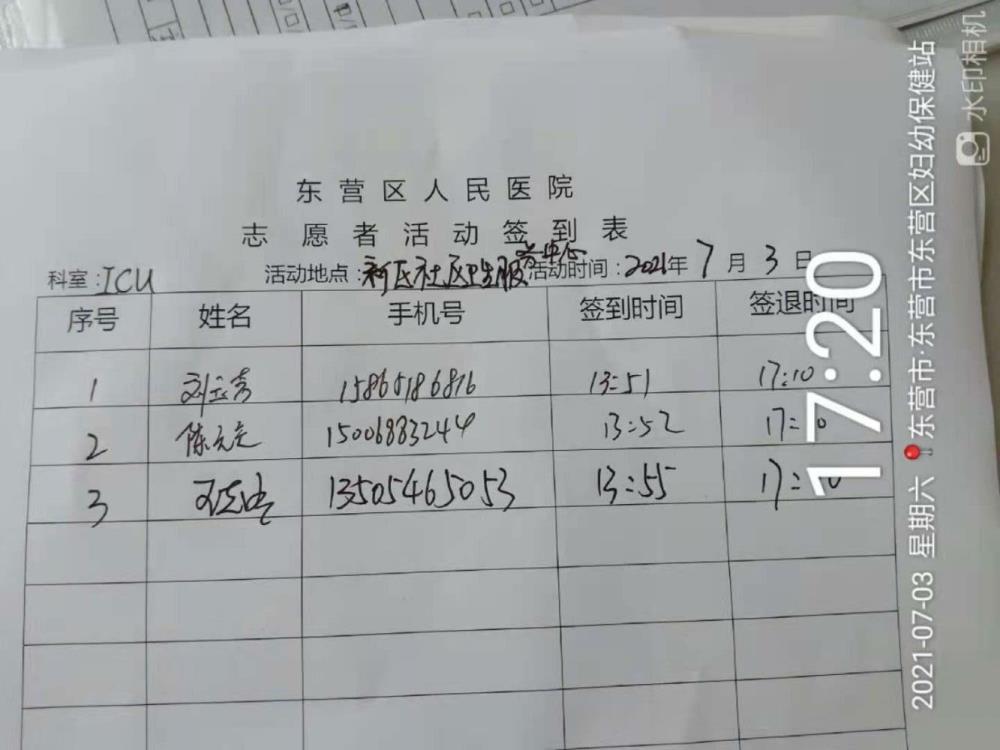 东营区人民医院
志愿者活动签到表
科室：ICU 活动地点：新区社区卫生服务中心 活动时间：2021年7月3日
序号 姓名 手机号 签到时间 签退时间
1 刘 15865186816 13:51 17:10
2 陈元元 15006883244 13:52 17:
3 13505465053 13:55 17:
17:20
2021-07-03 星期六 东营市·东营市东营区妇幼保健站
水印相机